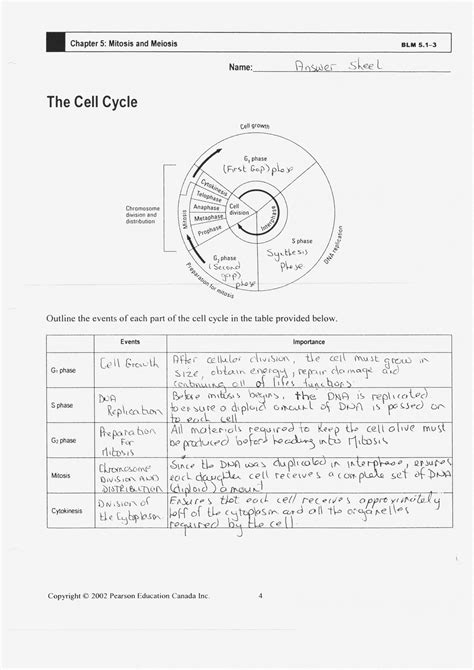 Chapter 5: Mitosis and Meiosis
BLM 5.1–3
Name: Answer Sheet
The Cell Cycle
Cell growth
G₁ phase
(First Gap) phase
Cytokinesis
Telophase
Anaphase
Metaphase
Prophase
Cell
division
Interphase
Mitosis
Chromosome
division and
distribution
S phase
Synthesis
phase
DNA replication
G₂ phase
(Second
gap)
phase
Preparation for mitosis
Outline the events of each part of the cell cycle in the table provided below.
Events
Importance
G₁ phase
Cell Growth
After cellular division, the cell must grow in
size, obtain energy, repair damage and
continuing all of lifes functions
S phase
DNA
Replication
Before mitosis begins, the DNA is replicated
to ensure a diploid amount of DNA is passed on
to each cell
G₂ phase
Preparation
For
Mitosis
All materials required to keep the cell alive must
be produced before heading into Mitosis
Mitosis
Chromosome
DIVISION AND
DISTRIBUTION
Since the DNA was duplicated in interphase, ensures
each daughter cell receives a complete set of DNA
(diploid) amount
Cytokinesis
Division of
the Cytoplasm
Ensures that each cell receives approximately
1/2 of the cytoplasm and all the organelles
required by the cell.
Copyright © 2002 Pearson Education Canada Inc.
4